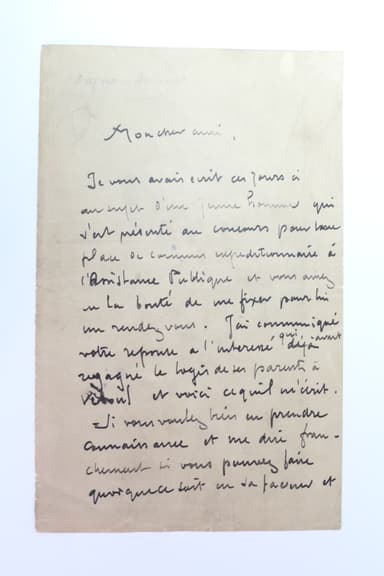 Mon cher ami,
Je vous avais ecrit ces jours ci
au sujet d'un jeune homme qui
s'est présenté au concours pour une
place de commis expeditionnaire à
l'Assistance Publique et vous avez
eu la bonté de me fixer pour lui
un rendez vous. J'ai communiqué
votre reponse a l'interessé qui avait déjà
regagné le logis de ses parents à
Vesoul et voici ce qu'il m'écrit.
Si vous voulez bien en prendre
connaissance et me dire fran-
chement si vous pouvez faire
quoique ce soit en sa faveur et